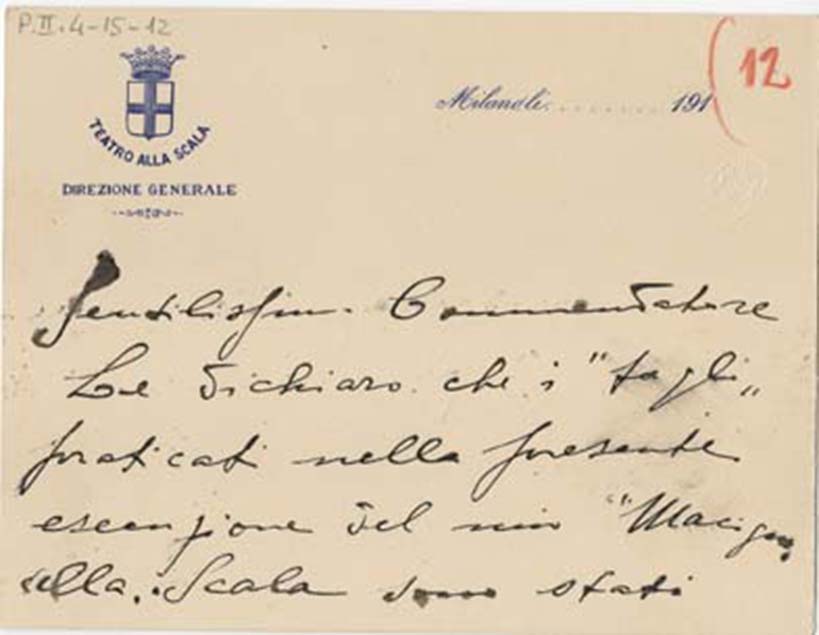 P.II.4-15-12
12
TEATRO ALLA SCALA
DIREZIONE GENERALE
Milano li ........... 191
Gentilissimo Commendatore
Le dichiaro che i "tagli„
praticati nella presente
esecuzione del mio "Macigno„
alla Scala sono stati